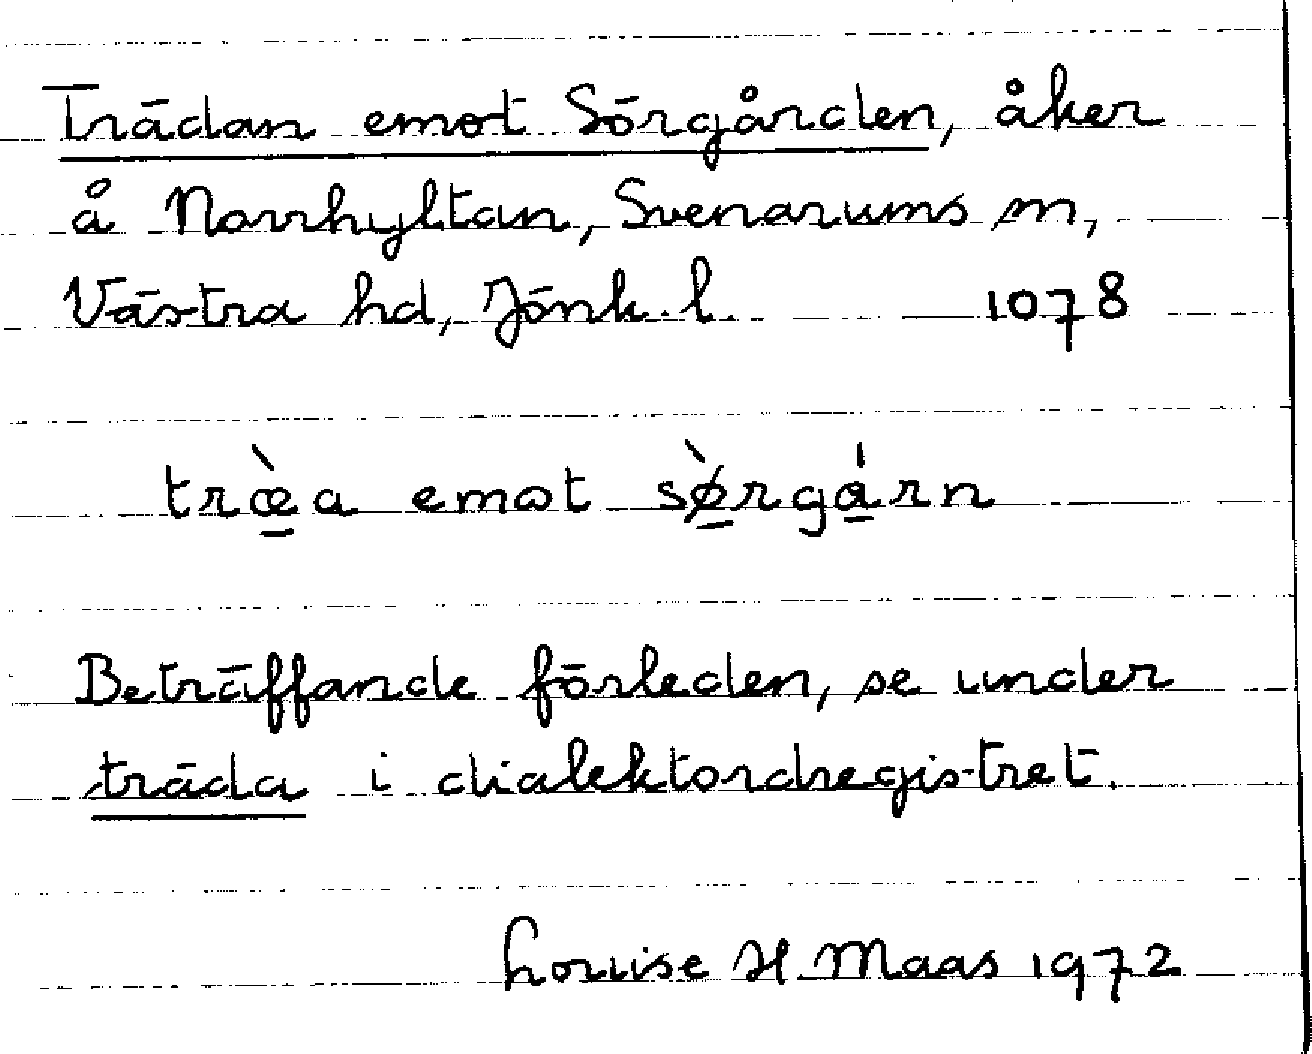 Trädan emot Sörgården, åker
å Norrhyltan, Svenarums sn,
Västra hd, Jönk. l. 1078
træ̠̀a emot sø̠̀rgá̠rn
Beträffande förleden, se under
träda i dialektordregistret.
Louise H. Maas 1972